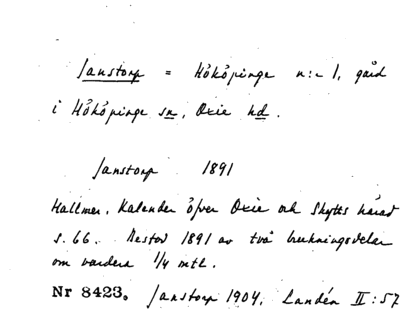 Janstorp = Hököpinge n:r 1, gård
i Hököpinge sn, Oxie hd.
Janstorp 1891
Hallmer. Kalender öfver Oxie och Skytts härad
s. 66. Bestod 1891 av två brukningsdelar
om vardera 1/4 mtl.
Nr 8423. Janstorp 1904. Landén II:57